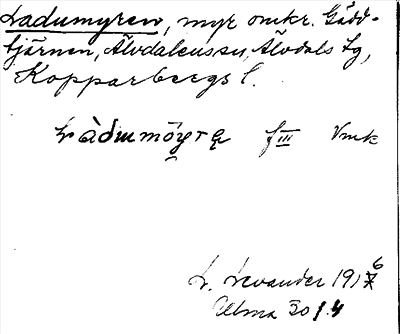 Ladumyren, myr omkr. Gädd-
tjärnen, Älvdalens sn, Älvdals tg,
Kopparbergs l.
f III Vmk
L. Levander 1916
Ulma 30 1.4